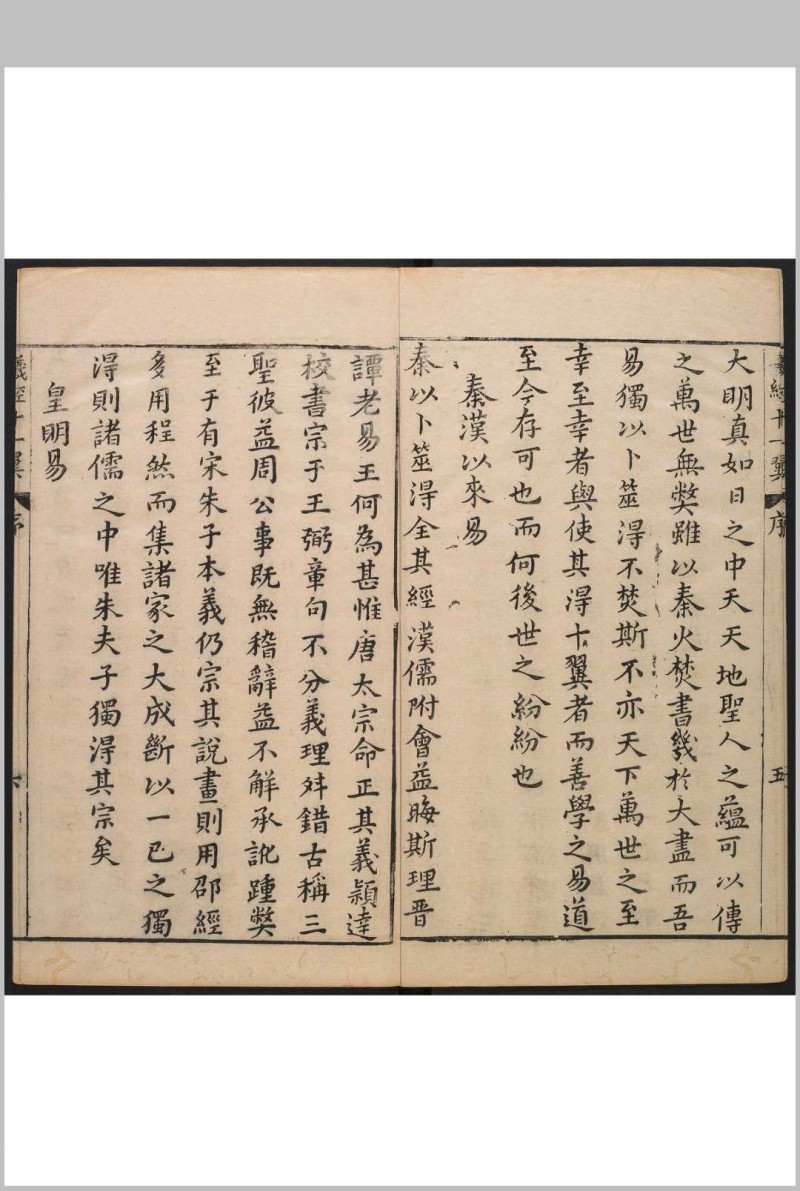 大明真如日之中天天地聖人之蘊可以傳
之萬世無獘雖以秦火焚書幾於大盡而吾
易獨以卜筮得不焚斯不亦天下萬世之至
幸至幸者與使其得十翼者而善學之易道
至今存可也而何後世之紛紛也
秦漢以來易
秦以卜筮得全其經漢儒附會益晦斯理晋
譚老易王何為甚惟唐太宗命正其義穎達
校書宗于王弼章句不分義理舛錯古稱三
聖彼益周公事既無稽辭益不解承訛踵獘
至于有宋朱子本義仍宗其說畫則用邵經
多用程然而集諸家之大成斷以一己之獨
得則諸儒之中唯朱夫子獨得其宗矣
皇明易
羲經十一翼 序 五
羲經十一翼 序 六